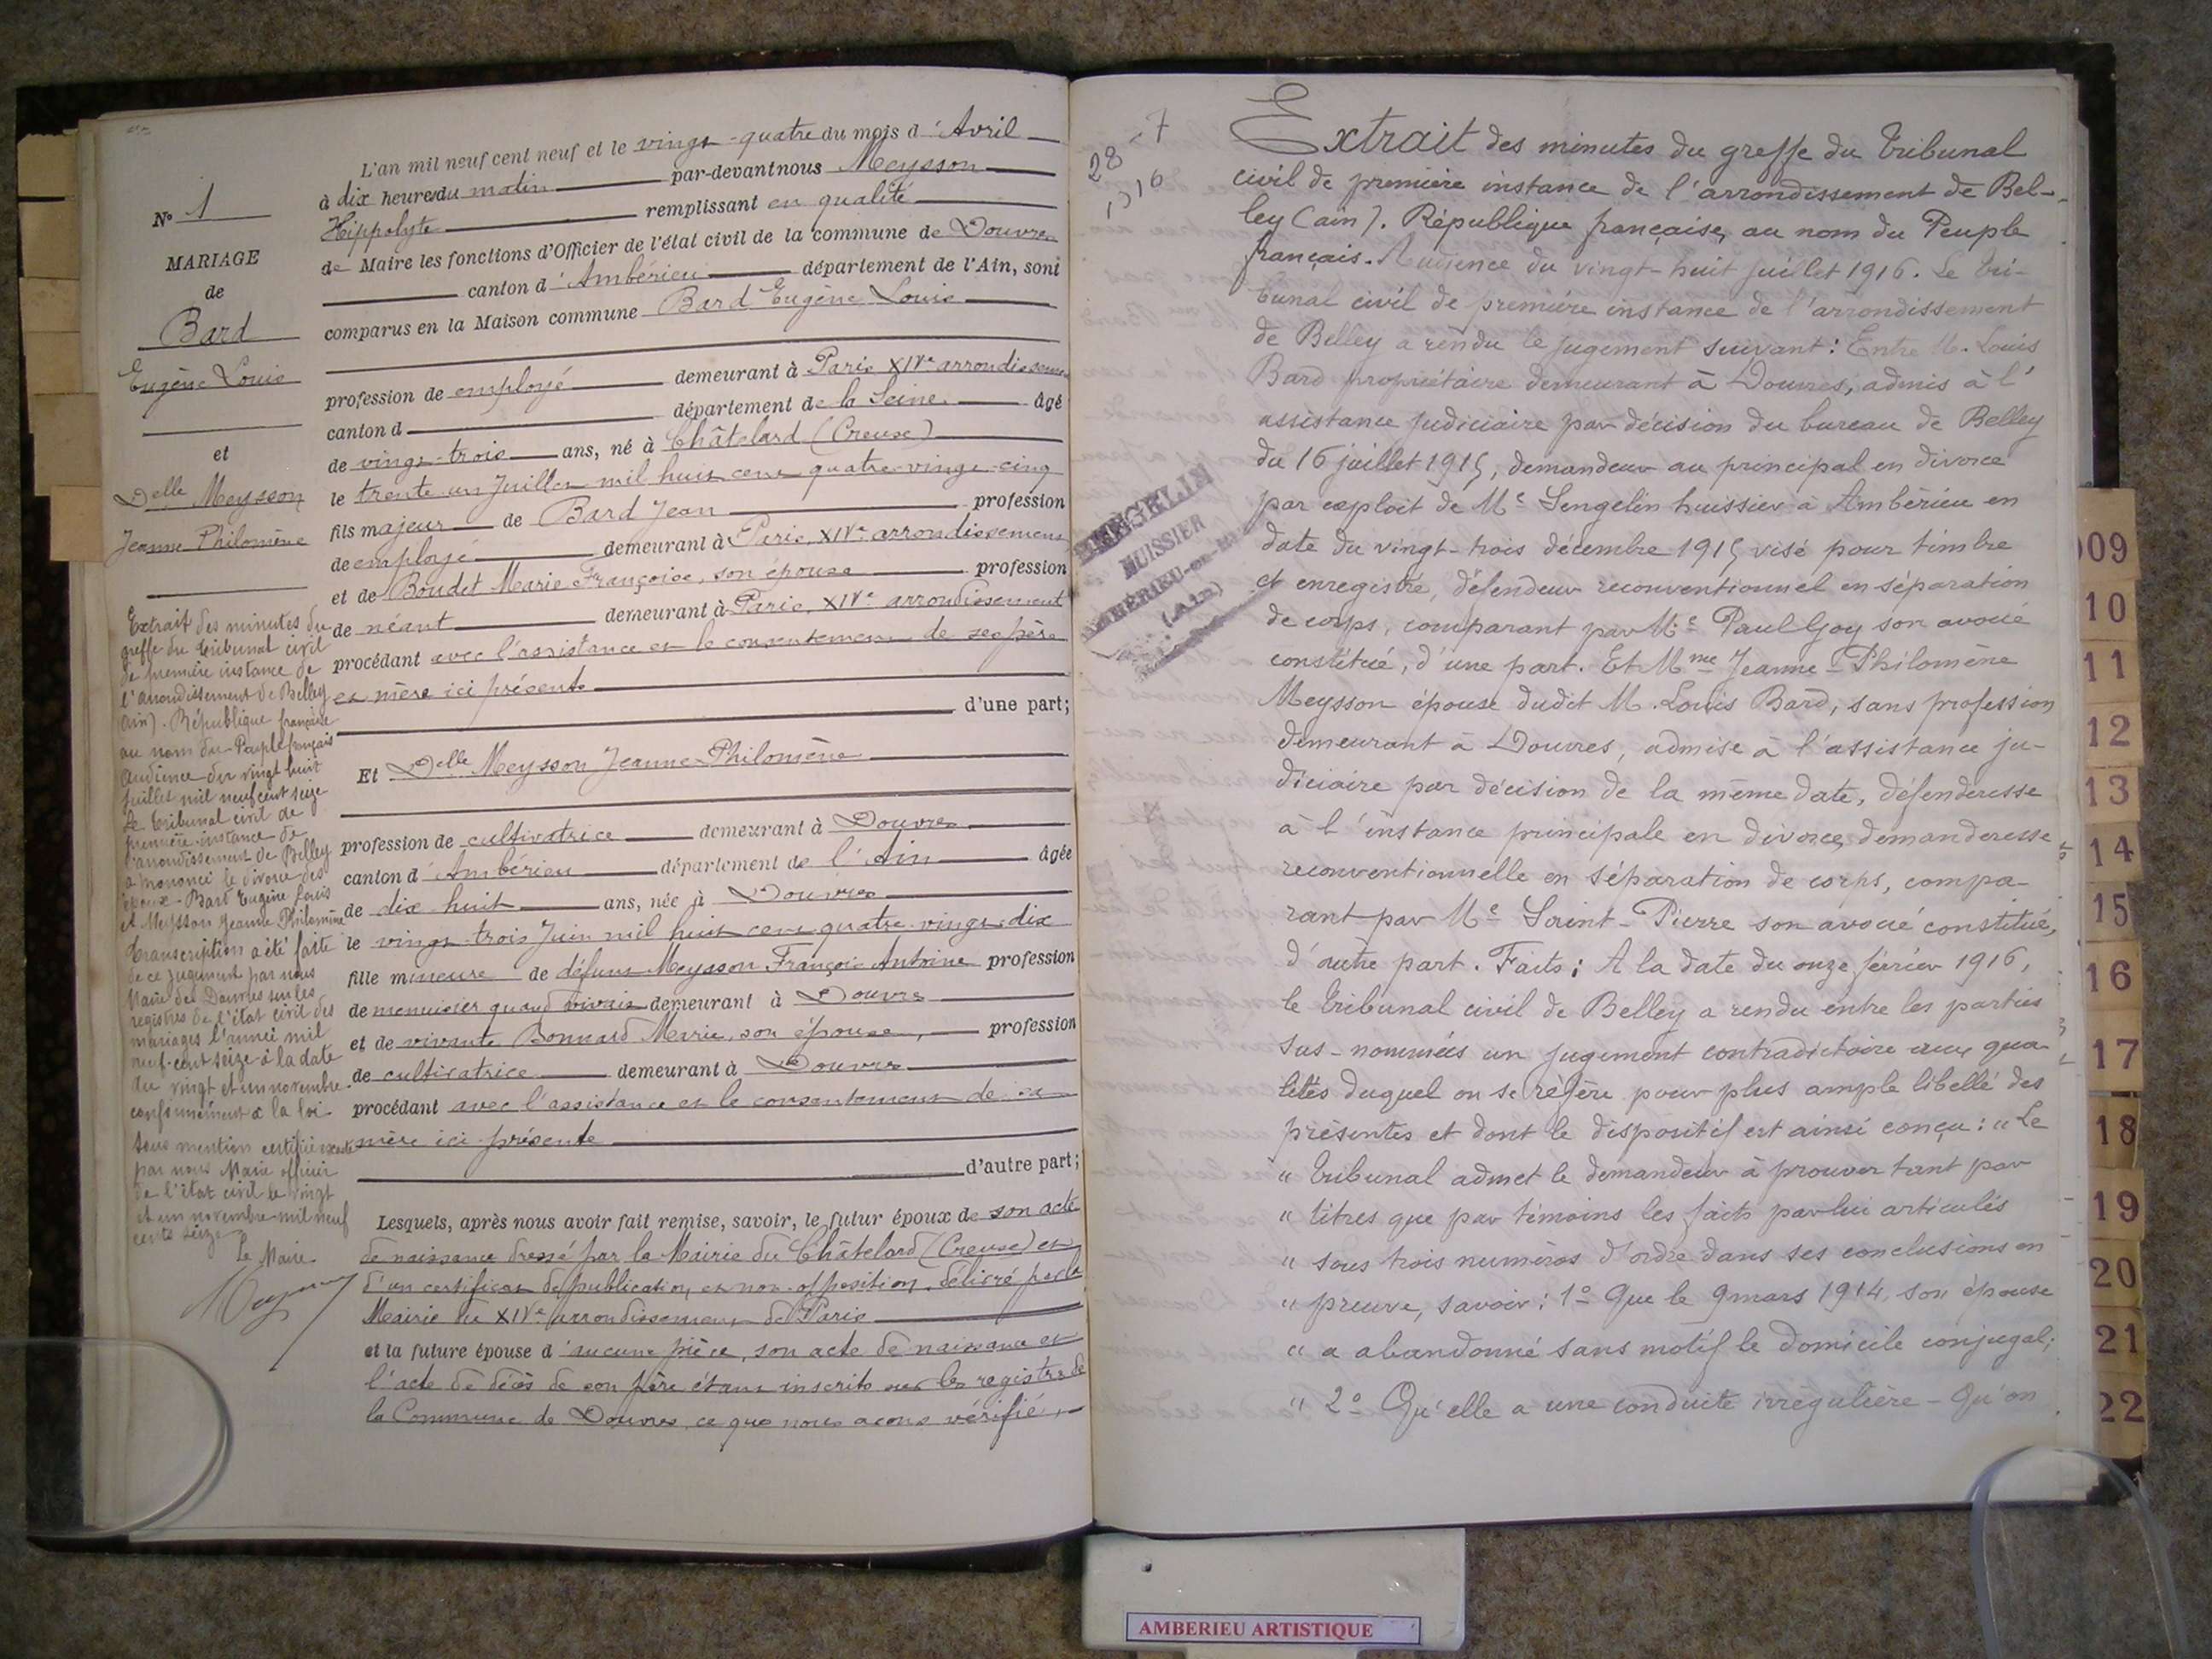 N° 1
MARIAGE
de
Bard
Eugène Louis
et
Delle Meysson
Jeanne Philomène
Extrait des minutes du
greffe du Tribunal civil
de première instance de
l'arrondissement de Belley
(Ain). République française
au nom du Peuple français
audience du vingt huit
juillet mil neuf cent seize
Le Tribunal civil de
première instance de
l'arrondissement de Belley
a prononcé le divorce des
époux Bard Eugène Louis
et Meysson Jeanne Philomène
transcription a été faite
de ce jugement par nous
Maire de Douvres sur les
registres de l'état civil des
mariages l'année mil
neuf-cent seize à la date
du vingt et un novembre
conformément à la loi
Sous mention certifiée exacte
par nous Maire officier
de l'état civil le vingt
et un novembre mil neuf
cents seize
Le Maire
L'an mil neuf cent neuf et le vingt-quatre du mois d'Avril
à dix heures du matin par-devant nous Meysson
Hippolyte remplissant en qualité
de Maire les fonctions d'Officier de l'état civil de la commune de Douvres
canton d'Ambérieu département de l'Ain, sont
comparus en la Maison commune Bard Eugène Louis
profession de employé demeurant à Paris XIVe arrondissement
canton d département de la Seine. âgé
de vingt-trois ans, né à Châtelard (Creuse)
le trente un Juillet mil huit cent quatre-vingt-cinq
fils majeur de Bard Jean profession
de employé demeurant à Paris, XIVe arrondissement
et de Boudet Marie Françoise, son épouse profession
de néant demeurant à Paris, XIVe arrondissement
procédant avec l'assistance et le consentement de ses père
et mère ici présents
d'une part;
Et Delle Meysson Jeanne Philomène
profession de cultivatrice demeurant à Douvres
canton d'Ambérieu département de l'Ain âgée
de dix huit ans, née à Douvres
le vingt-trois Juin mil huit cent quatre-vingt-dix
fille mineure de défunt Meysson François Antoine profession
de menuisier quand vivait demeurant à Douvres
et de vivante Bonnard Marie, son épouse, profession
de cultivatrice demeurant à Douvres
procédant avec l'assistance et le consentement de sa
mère ici présente
d'autre part;
Lesquels, après nous avoir fait remise, savoir, le futur époux de son acte
de naissance dressé par la Mairie du Châtelard (Creuse) et
d'un certificat de publication et non-opposition, délivré par la
Mairie du XIVe arrondissement de Paris
et la future épouse d'aucune pièce, son acte de naissance et
l'acte de décès de son père étant inscrits sur les registres de
la Commune de Douvres, ce que nous avons vérifié,
28-7
1916
Extrait des minutes du greffe du Tribunal
civil de première instance de l'arrondissement de Bel-
ley (ain). République française, au nom du Peuple
français. Audience du vingt-huit juillet 1916. Le Tri-
bunal civil de première instance de l'arrondissement
de Belley a rendu le jugement suivant: Entre M. Louis
Bard propriétaire demeurant à Douvres, admis à l'
assistance judiciaire par décision du bureau de Belley
du 16 juillet 1915, demandeur au principal en divorce
par exploit de Me Sengelin huissier à Ambérieu en
date du vingt-trois décembre 1915 visé pour timbre
et enregistré, défendeur reconventionnel en séparation
de corps, comparant par Me Paul Goy son avoué
constitué, d'une part. Et Mme Jeanne-Philomène
Meysson épouse dudit M. Louis Bard, sans profession
demeurant à Douvres, admise à l'assistance ju-
diciaire par décision de la même date, défenderesse
à l'instance principale en divorce, demanderesse
reconventionnelle en séparation de corps, compa-
rant par Me Saint-Pierre son avoué constitué,
d'autre part. Faits: A la date du onze février 1916,
le Tribunal civil de Belley a rendu entre les parties
sus-nommées un jugement contradictoire aux qua-
lités duquel on se réfère pour plus ample libellé des
présentes et dont le dispositif est ainsi conçu: "Le
" Tribunal admet le demandeur à prouver tant par
" titres que par témoins les faits par lui articulés
" sous trois numéros d'ordre dans ses conclusions en
" preuve, savoir: 1° Que le 9 mars 1914, son épouse
" a abandonné sans motif le domicile conjugal;
" 2° Qu'elle a une conduite irrégulière - Qu'on
SENGELIN
HUISSIER
AMBÉRIEU-en-
(Ain)
09
10
11
12
13
14
15
16
17
18
19
20
21
22
AMBERIEU ARTISTIQUE